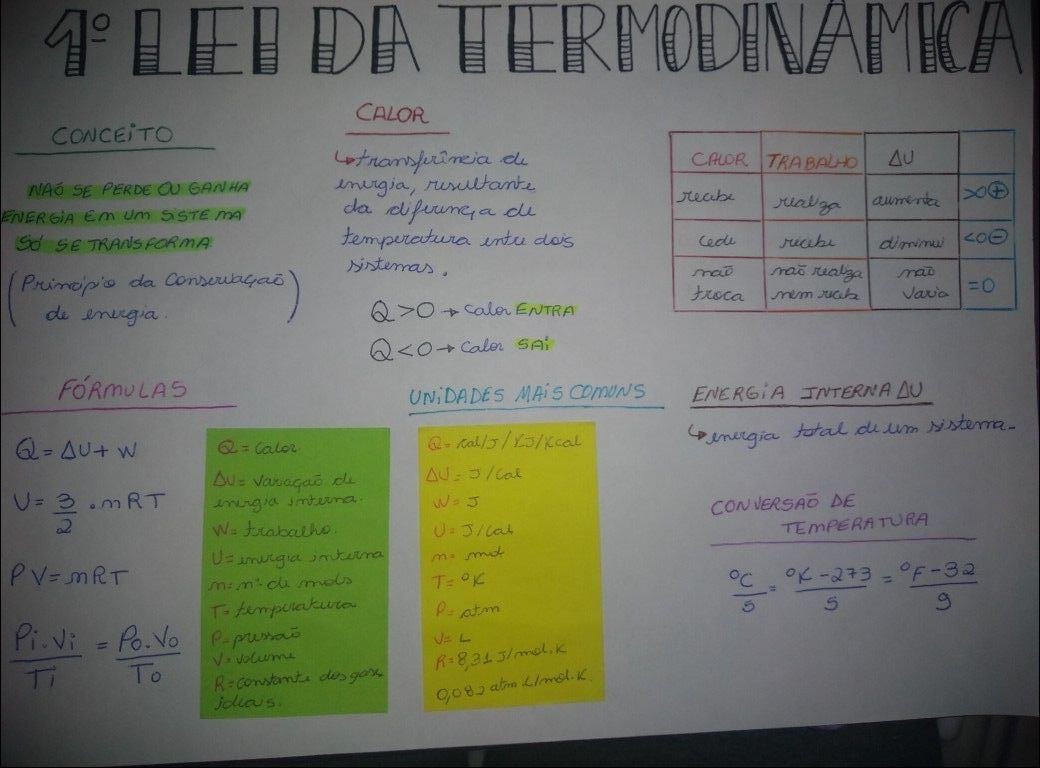 1º LEI DA TERMODINÂMICA
CONCEITO
NÃO SE PERDE OU GANHA
ENERGIA EM UM SISTEMA
SÓ SE TRANSFORMA
(Princípio da Conservação
de energia.)
CALOR
↳ transferência de
energia, resultante
da diferença de
temperatura entre dois
sistemas.
Q > 0 → Calor ENTRA
Q < 0 → Calor SAI
CALOR TRABALHO ΔU
recebe realiza aumenta >0 ⊕
cede recebe diminui <0 ⊖
não não realiza não =0
troca nem recebe varia
FÓRMULAS
Q = ΔU + W
U = 3/2 . nRT
PV = nRT
Pi.Vi/Ti = Po.Vo/To
Q = Calor
ΔU = Variação de
energia interna.
W = trabalho.
U = energia interna
n = nº de mols
T = temperatura
P = pressão
V = volume
R = constante dos gases
ideais.
UNIDADES MAIS COMUNS
Q = cal/J/KJ/Kcal
ΔU = J/Cal
W = J
U = J/Cal
n = mol
T = ºK
P = atm
V = L
R = 8,31 J/mol.K
0,082 atm L/mol.K.
ENERGIA INTERNA ΔU
↳ energia total de um sistema.
CONVERSÃO DE
TEMPERATURA
ºC/5 = ºK-273/5 = ºF-32/9